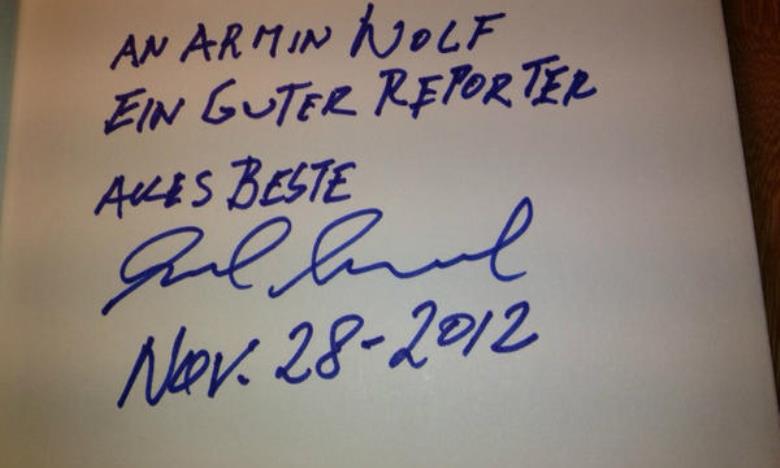 AN ARMIN WOLF
EIN GUTER REPORTER
ALLES BESTE
Nov. 28-2012